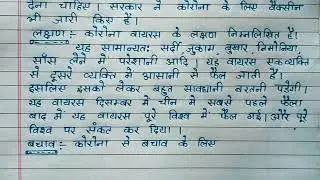 देना चाहिए। सरकार ने कोरोना के लिए वैक्सीन
भी जारी किस हैं।
लक्षण:- कोरोना वायरस के लक्षण निम्नलिखित हैं।
यह सामान्यतः सर्दी जुकाम, बुखार, निमोनिया,
साँस लेने में परेशानी आदि। यह वायरस एक व्यक्ति
से दूसरे व्यक्ति में आसानी से फैल जाता है।
इसलिए इसको लेकर बहुत सावधानी बरतनी पड़ेगी।
यह वायरस दिसम्बर में चीन में सबसे पहले फैला
बाद में यह वायरस पूरे विश्व में फैल गई। और पूरे
विश्व पर संकट कर दिया।
बचाव:- कोरोना से बचाव के लिए